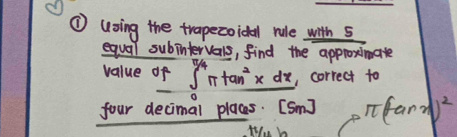 ① Using the trapezoidal rule with 5
equal subintervals, find the approximate
value of ∫₀^(π/4) π tan² x dx, correct to
four decimal places. [5m]
π(tan x)²